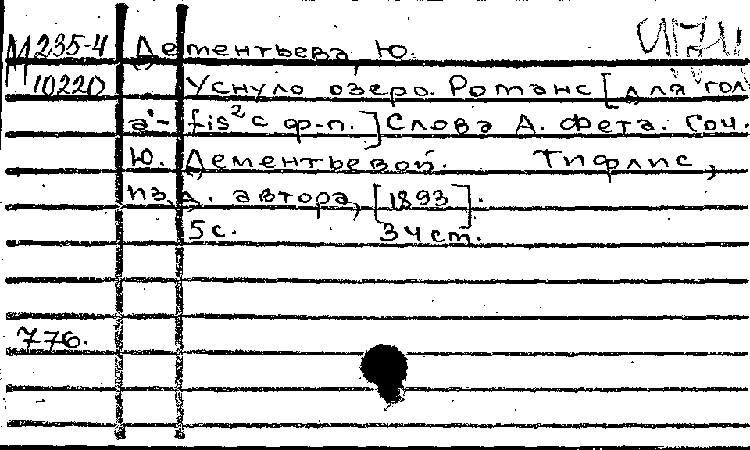 М 235-4 Дементьева, Ю.
10220 Уснуло озеро. Романс [для гол.
a¹- fis² с ф-п.] Слова А. Фета. Соч.
Ю. Дементьевой. Тифлис,
изд. автора, [1893].
5 с. 34 ст.
776.